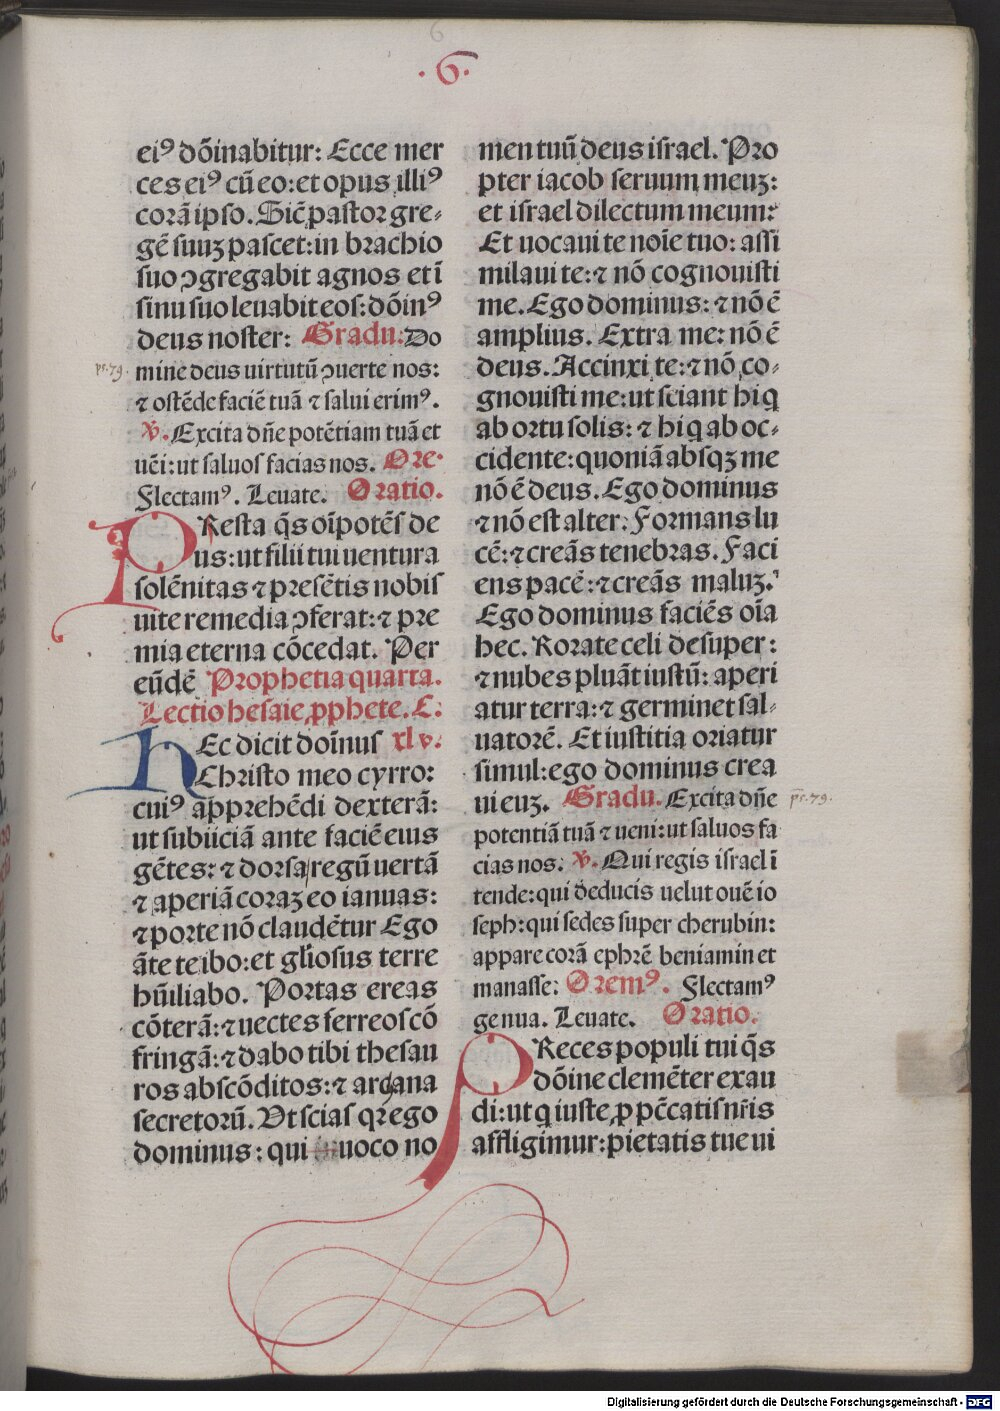 6
·6·
eiꝰ dõinabitur: Ecce mer
ces eiꝰ cũ eo: et opus illiꝰ
corã ipso. Sicẽ pastor gre⸗
gẽ suuꝫ pascet: in brachio
suo ꝯgregabit agnos et ĩ
sinu suo leuabit eos: dõinꝰ
deus noster: Gradu. Do
ps. 79. mine deus uirtutũ ꝯuerte nos:
⁊ ostẽde faciẽ tuã ⁊ salui erimꝰ.
℣. Excita dñe potẽtiam tuã et
uẽi: ut saluos facias nos. Ore·
Flectamꝰ. Leuate. Oratio.
PResta q̃s oĩpotẽs de
us: ut filii tui uentura
solẽnitas ⁊ presẽtis nobis
uite remedia ꝯferat: ⁊ pre
mia eterna cõcedat. Per
eũdẽ Prophetia quarta.
Lectio hesaie ꝓphete. C.
HEc dicit doĩnus xlv.
Christo meo cyrro:
cuiꝰ apprehẽdi dexterã:
ut subiiciã ante faciẽ eius
gẽtes: ⁊ dorsa regũ uertã
⁊ aperiã coraꝫ eo ianuas:
⁊ porte nõ claudẽtur Ego
ãte te ibo: et gl̃iosus terre
hũiliabo. Portas ereas
cõterã: ⁊ uectes ferreos cõ
fringã: ⁊ dabo tibi thesau
ros abscõditos: ⁊ arcana
secretorũ. Ut scias qꝛ ego
dominus: qui uoco no
men tuũ deus israel. Pro
pter iacob seruum meuꝫ:
et israel dilectum meum:
Et uocaui te noĩe tuo: assi
milaui te: ⁊ nõ cognouisti
me. Ego dominus: ⁊ nõ ẽ
amplius. Extra me: nõ ẽ
deus. Accinxi te: ⁊ nõ co⸗
gnouisti me: ut sciant hi q
ab ortu solis: ⁊ hi q ab oc⸗
cidente: quoniã absqꝫ me
nõ ẽ deus. Ego dominus
⁊ nõ est alter: Formans lu
cẽ: ⁊ creãs tenebras. Faci
ens pacẽ: ⁊ creãs maluꝫ.
Ego dominus faciẽs oĩa
hec. Rorate celi desuper:
⁊ nubes pluãt iustũ: aperi
atur terra: ⁊ germinet sal⸗
uatorẽ. Et iustitia oriatur
simul: ego dominus crea
ui euꝫ. Gradu. Excita dñe ps. 79.
potentiã tuã ⁊ ueni: ut saluos fa
cias nos. ℣. Qui regis israel ĩ
tende: qui deducis uelut ouẽ io
seph: qui sedes super cherubin:
appare corã ephrẽ beniamin et
manasse: Oremꝰ. Flectamꝰ
genua. Leuate. Oratio.
PReces populi tui q̃s
dõine clemẽter exau
di: ut q iuste ꝓ pc̃catis nr̃is
affligimur: pietatis tue ui
Digitalisierung gefördert durch die Deutsche Forschungsgemeinschaft - DFG